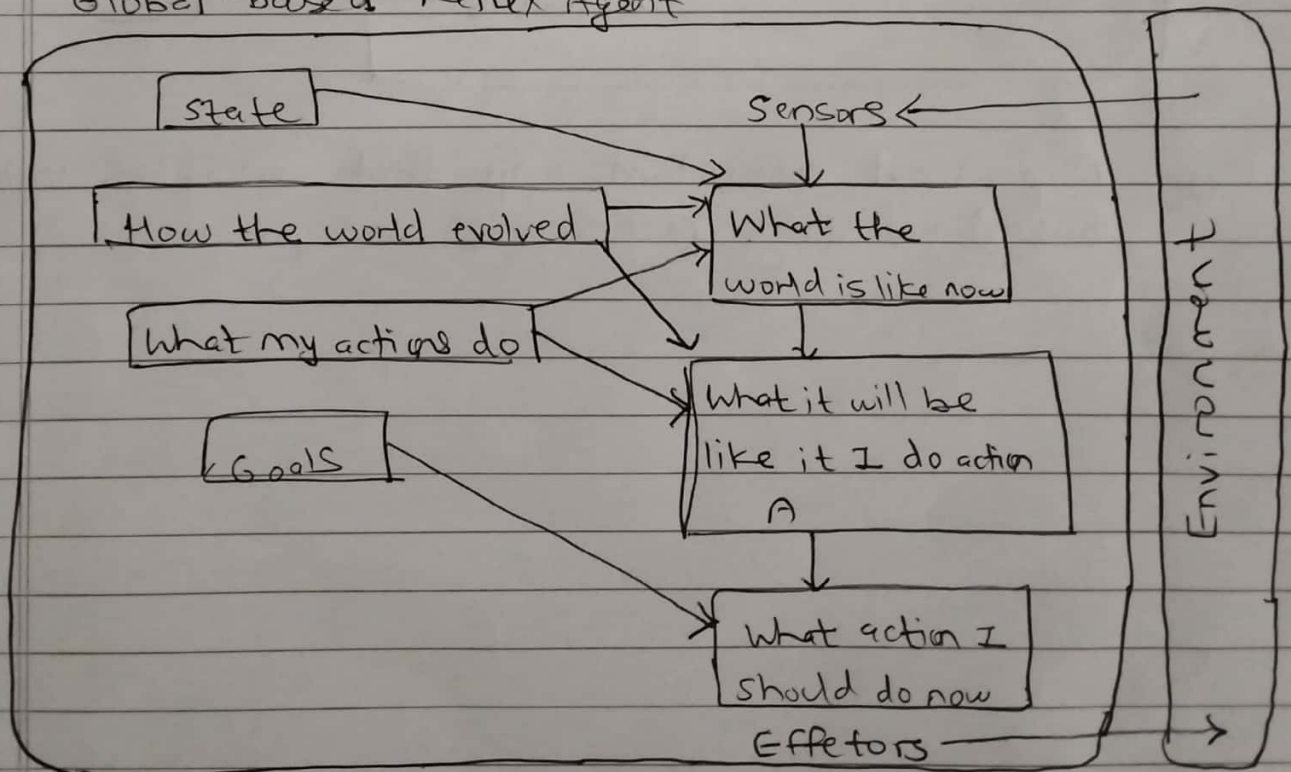 Global based Reflex Agent
State
Sensors
How the world evolved
What the
world is like now
What my actions do
What it will be
like it I do action
A
Goals
What action I
should do now
Effetors
Environment